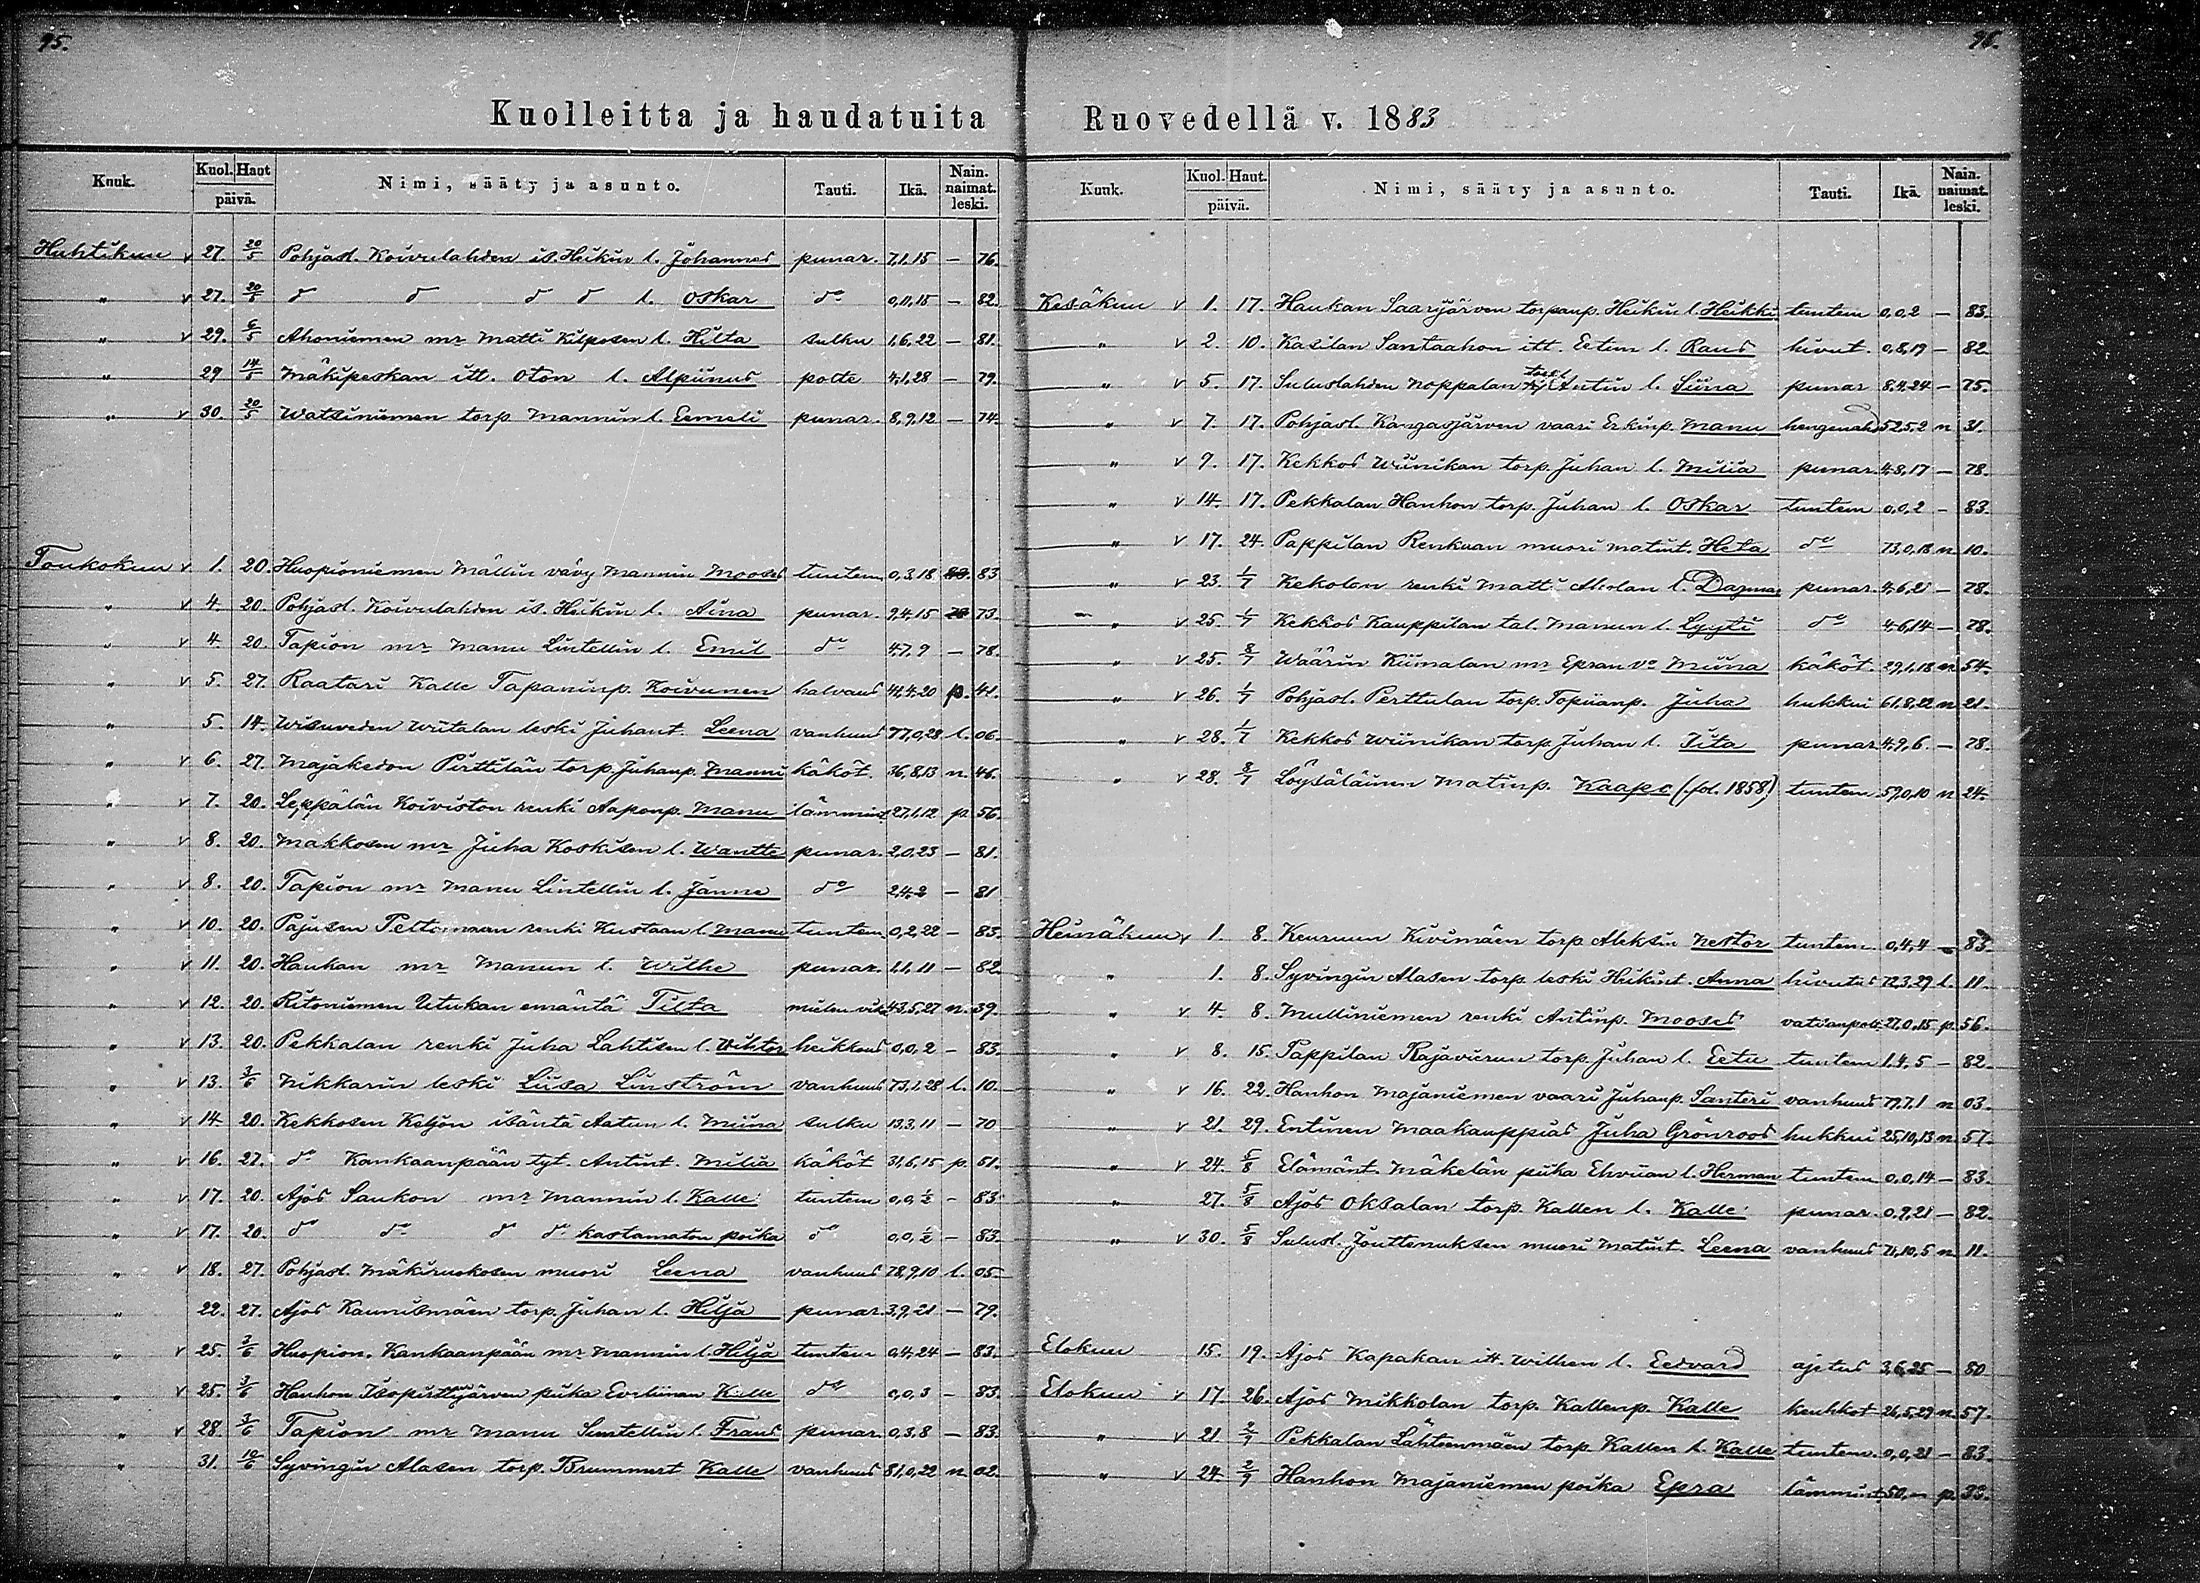 95.
Kuolleitta ja haudatuita
Kuuk. Kuol. Haut päivä. Nimi, sääty ja asunto. Tauti. Ikä. Nain. naimat. leski.
Huhtikuu v 27. 20/5 Pohjasl. Koivulahden is. Heikin l. Johannes punar. 7,1,15 — 76.
" v 27. 20/5 do do do do l. Oskar do 0,11,15 — 82.
" v 29. 6/5 Ahoniemen mr Matti Kilposen l. Hilta sulku 1,6,22 — 81.
" 29 14/5 Mäkipeskan itt. Oton l. Alpiinus potte 4,1,28 — 79.
" v 30. 20/5 Watsiniemen torp. Mannin l. Eemeli punar. 8,9,12 — 74.
Toukokuu v 1. 20. Huopioniemen Mällin vävy Mannin Mooses tuntem. 0,3,18 83
" v 4. 20. Pohjasl. Koivulahden is. Heikin l. Aina punar. 9,4,15 73.
" v 4. 20. Tapion mr Manu Lintellin l. Emil do 4,7,9 — 78.
" v 5. 27. Raatari Kalle Tapaninp. Koivunen halvaus 41,4,20 p. 41.
" 5. 14. Wisuveden Wiitalan leski Juhant. Leena vanhuus 77,0,28 l. 06.
" v 6. 27. Majakedon Pirttilän torp. Juhanp. Mannu käköt. 36,8,13 n. 46.
" v 7. 20. Leppälän Koiviston renki Aaponp. Manu lämmint 27,1,12 p. 56.
" v 8. 20. Makkosen mr Juha Koskisen l. Wantte punar. 2,0,23 — 81.
" v 8. 20. Tapion mr Manu Lintellin l. Janne do 2,4,2 — 81
" v 10. 20. Pajusen Peltomaan renki Kustaan l. Manu tuntem. 0,2,22 — 83.
" v 11. 20. Haukan mr Manun l. Wilhe punar. 1,1,11 — 82.
" v 12. 20. Ritoniemen Utukan emäntä Tilta mielen vika 43,5,27 n. 39.
" v 13. 20. Pekkalan renki Juha Lahtisen l. Wihtor heikkous 0,0,2 — 83.
" v 13. 3/6 Nikkarin leski Liisa Linström vanhuus 73,1,28 l. 10.
" v 14. 20. Kekkosen Keljon isäntä Aatun l. Miina sulku 13,3,11 — 70
" v 16. 27. do Kankaanpään tyt. Antint. Milia käköt 31,6,15 p. 51.
" v 17. 20. Ajos Saukon mr Mannin l. Kalle tuntem 0,0,½ — 83.
" v 17. 20. do do do do kastamaton poika do 0,0,½ — 83.
" v 18. 27. Pohjasl. Mäkiruokosen muori Leena vanhuus 78,9,10 l. 05.
" 22. 27. Ajos Kaunismäen torp. Juhan l. Hilja punar. 3,9,21 — 79.
" v 25. 3/6 Huopion. Kankaanpään mr Mannin l. Hilja tuntem 0,4,24 — 83.
" v 25. 3/6 Hanhon piika Eveliinan Kalle do 0,0,3 — 83.
" v 28. 3/6 Tapion mr Manu l. Frans punar. 0,3,8 — 83.
" 31. 10/6 Syvingin Alasen torp. Brummert Kalle vanhuus 81,0,22 n. 02.
96.
Ruovedellä v. 1883
Kuuk. Kuol. Haut. päivä. Nimi, sääty ja asunto. Tauti. Ikä. Nain. naimat. leski.
Kesäkuu v 1. 17. Haukan Saarijärven torpanp. Heikin l. Heikki tuntem 0,0,2 — 83.
" v 2. 10. Kasilan Santaahon itt. Eetun l. Raus hivut. 0,8,19 — 82.
" v 5. 17. Suluslahden Noppalan Antin l. Siina punar 8,4,24 — 75.
" v 7. 17. Pohjasl. Kangasjärven vaari Erkinp. Manu hengenahd 52,5,2 n 31.
" v 9. 17. Kekkos Wiinikan torp. Juhan l. Miliia punar 4,8,17 — 78.
" v 14. 17. Pekkalan Hanhon torp. Juhan l. Oskar tuntem 0,0,2 — 83.
" v 17. 24. Pappilan Renkuan muori Matint. Heta do 73,0,18 n 10.
" v 23. 1/7 Kekolan renki Matti Aholan l. Dagmar punar. 4,6,21 — 78.
" v 25. 1/7 Kekkos Kauppilan tal. Manun l. Lyyti do 4,6,14 — 78.
" v 25. 8/7 Wäärin Kiimalan mr Epran vo Miina käköt. 29,1,18 n. 54.
" v 26. 1/7 Pohjasl. Perttulan torp. Topiianp. Juha hukkui 61,8,22 n 21.
" v 28. 1/7 Kekkos Wiinikan torp. Juhan l. Iita punar 4,9,6. — 78.
" v 28. 8/7 Löysäläinen Matinp. Kaapo (fol. 1858) tuntem 59,0,10 n 24.
Heinäkuu v 1. 8. Keuruun Kivimäen torp. Aleksin Nestor tuntem 0,4,4 — 83
" 1. 8. Syvingin Alasen torp. leski Heikint. Anna hivutus 72,3,29 l. 11.
" v 4. 8. Mulliniemen renki Antinp. Mooses vatsanpolt 27,0,15 p. 56.
" v 8. 15. Pappilan Rajavieren torp. Juhan l. Eetu tuntem 1,4,5 — 82.
" v 16. 22. Hanhon Majaniemen vaari Juhanp. Santeri vanhuus 79,7,1 n 03.
" v 21. 29. Entinen Maakauppias Juha Grönroos hukkui 25,10,13 n. 57.
" v 24. 5/8 Elämänt. Mäkelän piika Ehviian l. Herman tuntem 0,0,14 — 83.
" 27. 5/8 Ajos Oksalan torp. Kallen l. Kalle punar. 0,9,21 — 82.
" v 30. 5/8 Sulusl. Jouttenuksen muori Matint. Leena vanhuus 71,10,5 n. 11.
Elokuu 15. 19. Ajos Kapakan itt. Wilhen l. Eedvard ajetus 3,6,25 — 80
Elokuu v 17. 26. Ajos Mikkolan torp. Kallenp. Kalle keuhkot 26,5,29 n. 57.
" v 21 2/9 Pekkalan Lähteenmäen torp. Kallen l. Kalle tuntem. 0,0,21 — 83.
" v 24. 2/9 Hanhon Majaniemen poika Epra lämmint. 50,— p. 33.